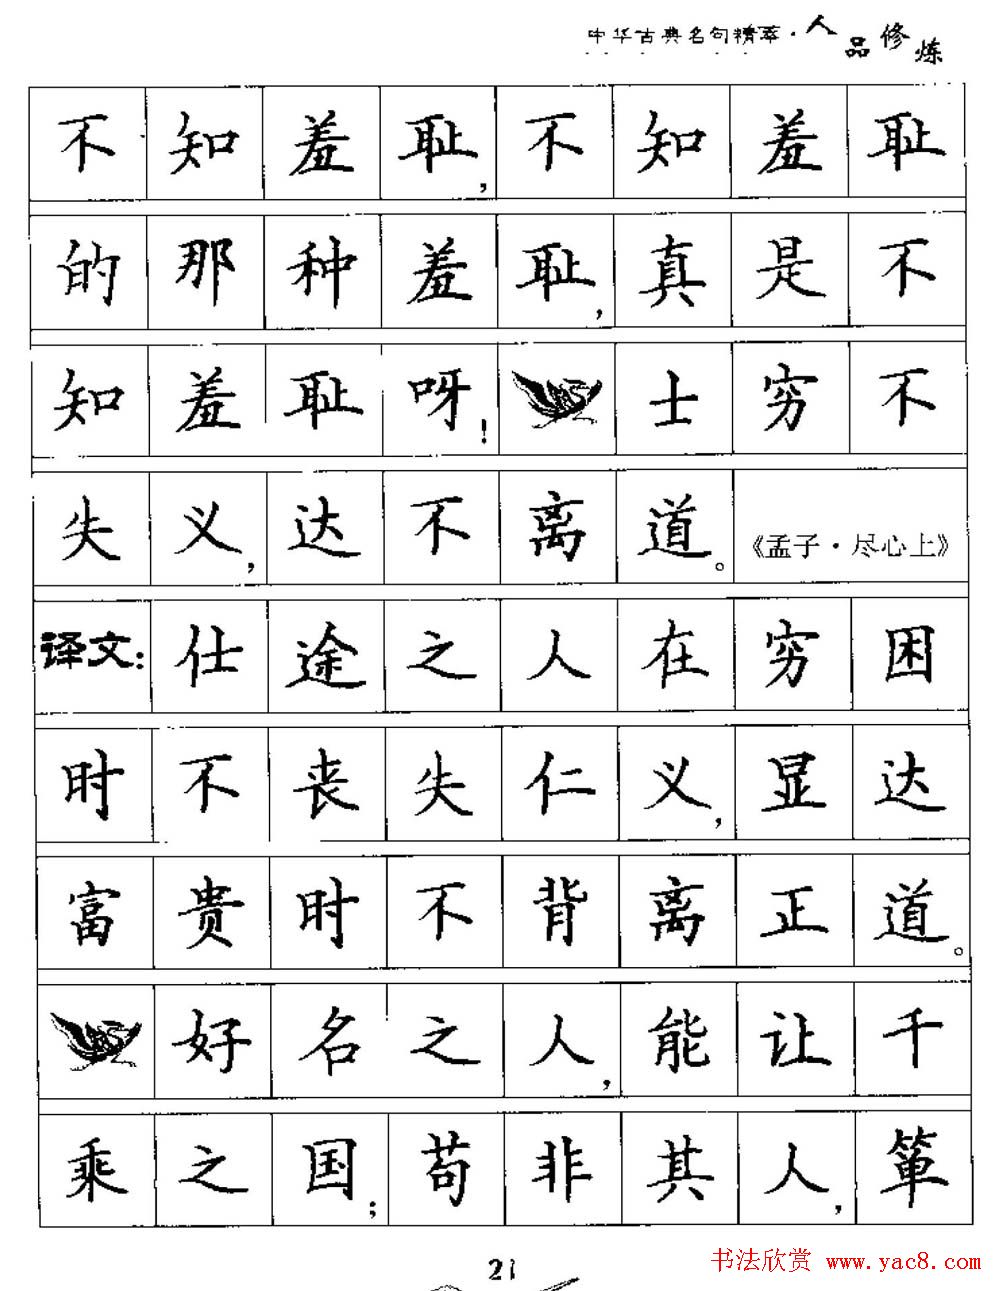 中华古典名句精萃·人品修炼
不知羞耻,不知羞耻
的那种羞耻,真是不
知羞耻呀!士穷不
失义,达不离道。《孟子·尽心上》
译文:仕途之人在穷困
时不丧失仁义,显达
富贵时不背离正道。
好名之人,能让千
乘之国;苟非其人,箪
21
书法欣赏 www.yac8.com